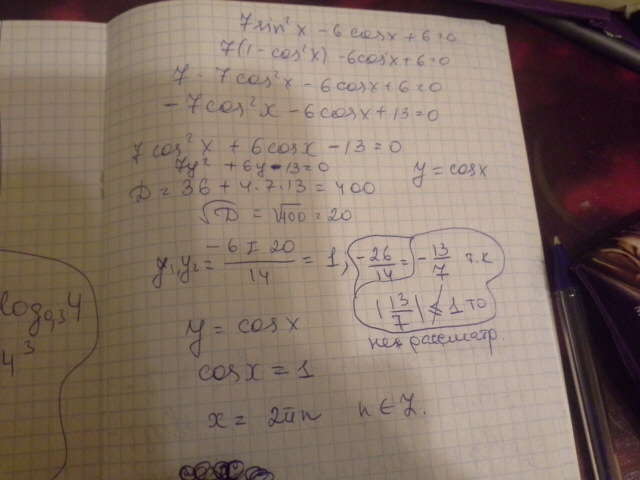 7sin²x - 6cosx + 6 = 0
7(1 - cos²x) - 6cosx + 6 = 0
7 - 7cos²x - 6cosx + 6 = 0
- 7cos²x - 6cosx + 13 = 0
7cos²x + 6cosx - 13 = 0
7y² + 6y - 13 = 0 y = cosx
D = 36 + 4·7·13 = 400
√D = √400 = 20
y₁,y₂ = (-6 ± 20)/14 = 1, -26/14 = -13/7 т.к
|13/7| ≰ 1 то
не рассматр.
y = cosx
cosx = 1
x = 2πn n ∈ Z.
log₀,₃4
4³